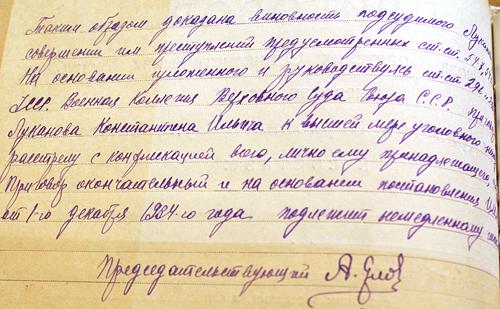 Таким образом доказана виновность подсудимого Лукано
совершении им преступлений предусмотренных ст.ст. 58-7, 5
На основании изложенного и руководствуясь ст.ст. 296
УССР. Военная Коллегия Верховного Суда Союза С.С.Р.
Луканова Константина Ильича к высшей мере уголовного
расстрелу с конфискацией всего, лично ему принадлежащего,
Приговор окончательный и на основании постановления
от 1-го декабря 1934-го года подлежит немедленному
Председательствующий А. Орлов